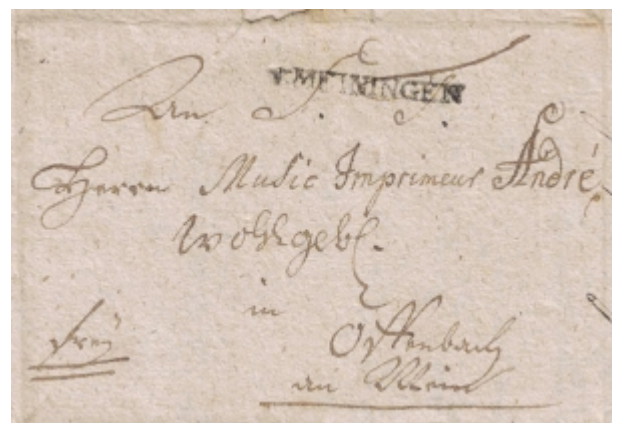 v. MEININGEN
An
Herrn Music Imprimeur André
wohlgeb.
in
Offenbach
frey
am Mein